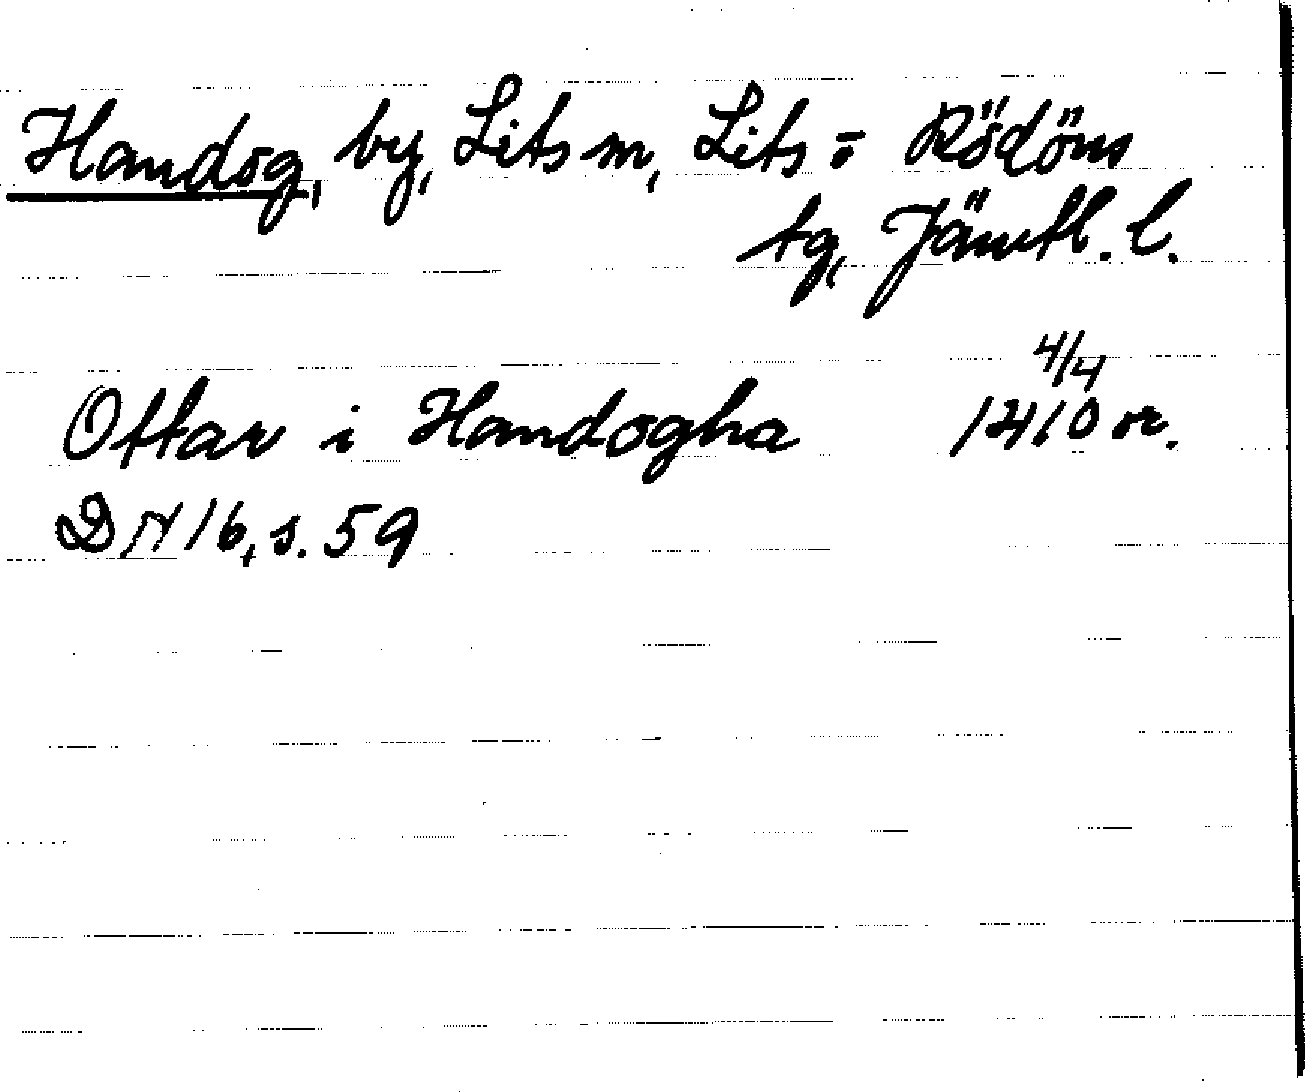 Handog, by, Lits m, Lits o Rödöns
tg, Jämtl. l.
Ottar i Handogha 4/4 1410 or.
DN 16, s. 59